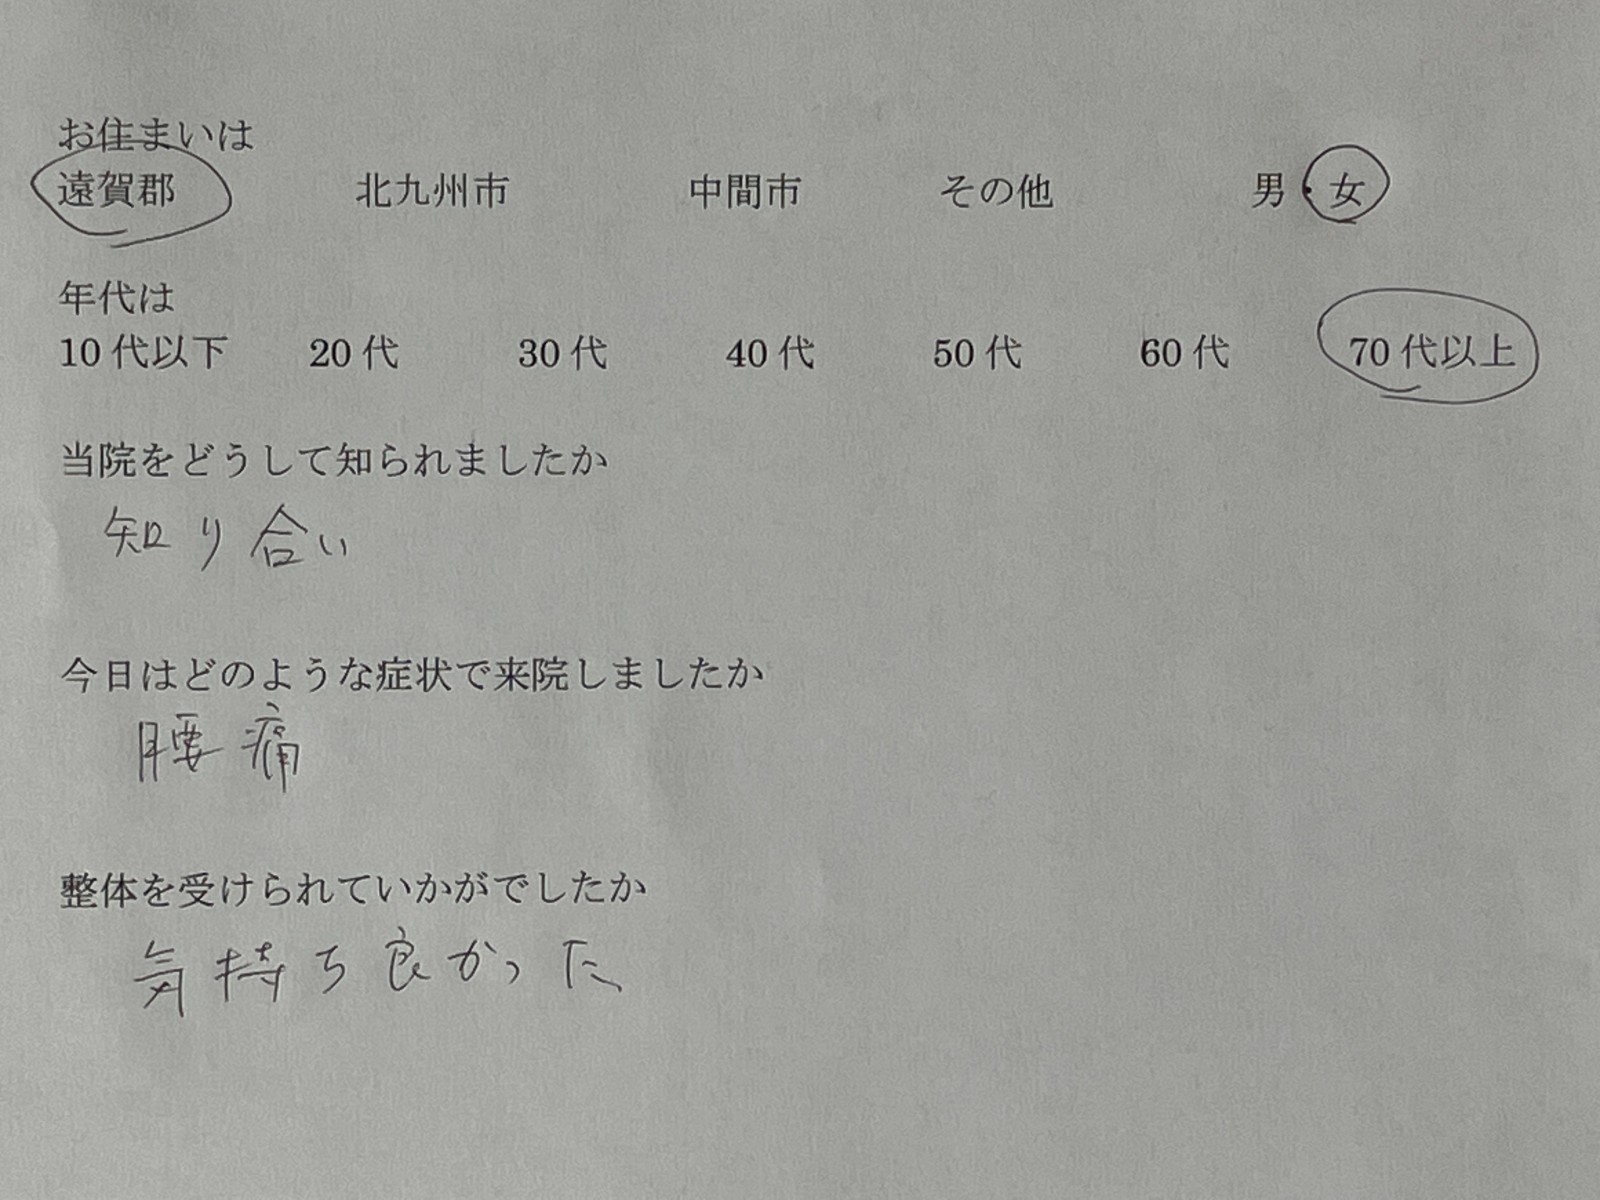 お住まいは
遠賀郡 北九州市 中間市 その他 男・女
年代は
10代以下 20代 30代 40代 50代 60代 70代以上
当院をどうして知られましたか
知り合い
今日はどのような症状で来院しましたか
腰痛
整体を受けられていかがでしたか
気持ち良かった